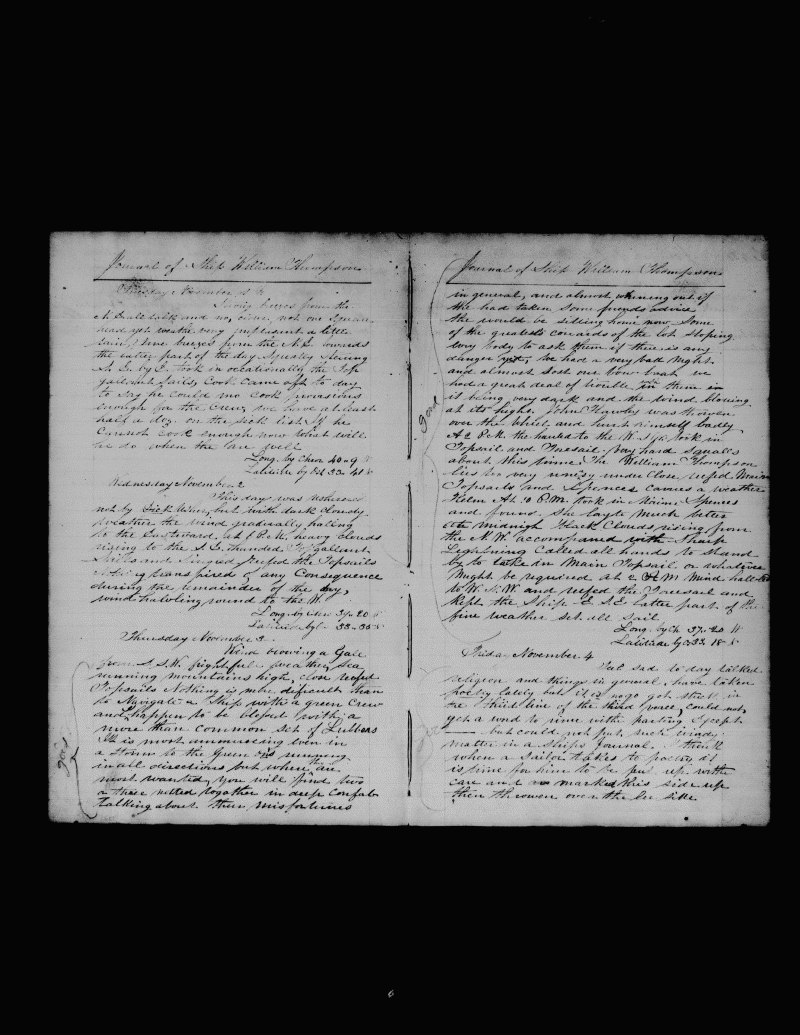 Journal of Ship William Thompson
Tuesday November 1st
Strong breezes from the
talk and no, not one Square
yet weather very unpleasant a little
rain fine breezes from the N.E. towards
the latter part of the day Squally Steering
S. E. by E. took in occationally the Top
gallant Sails, Cook came aft to day
to Say he could no Cook provisions
enough for the Crew, we have at least
half a doz. on the sick list. If he
Cannot Cook enough now What will
he do when the are well
Long. by Chron 40 . 9
Latitude by 33 . 41 S
Wednesday November 2
This day was ushered
not by Sick Men, but with dark cloudy
weather the wind gradually haling
to the Eastward. at 1 P.M. heavy clouds
rising to the S. E. handed Top gallant
Sails and reefed the Topsails
Nothing transpired of any Consequence
during the remainder of the day,
wind hawling round to the N.
Long. by Chro 39 . 20
Latitude by 33 . 35 S
Thursday November 3
Wind blowing a Gale
from S.S.W. frightful weather, Sea
running mountains high, close reefed
Topsails Nothing is more dificult than
to Navigate a Ship with a green Crew
and happen to be blessed with a
more than Common set of Lubbers
It is most amuseing even in
a Storm to see the Green uns running
in all directions but when the are
most wanted, you will find two
or three netted together in deep confab
talking about their misfortunes
good
Journal of Ship William Thompson
in general, and almost whineing out if
the had taken Some friends advice
the would be sitting home now Some
of the greatests cowards of the lot Stoping
every body to ask them if there is any
danger yet, We had a very bad Night
and almost lost our bow boat we
had a great deal of trouble, in them in
it being very dark and the wind blowing
at its highs. John Hawley was throwen
over the Wheel and hurt himself badly
At 2 P.M. the hauled to the W. S. took in
Topsail and Foresail. Very hard Squalls
about this time. The William Thompson
lies too very uneisy under Close reefed Main
Topsails and Spences Carries a weather
Helm At 10 P.M. took in Main Spences
and found She layed Much better
At midnigh Black Clouds rising from
the N. W. accompaned with Sharp
Lightning Called all hands to Stand
by to take in Main Topsail or whatever
Might be required at 2 A M Wind
to W. N. W. and reefed the Foresail and
kept the Ship E. S. E. latter part of the
fine weather set all Sail
Long. by Ch 37 . 20 W
Latitude by O 33 . 18 S
good
Friday November 4
Felt sad to day talked
religion and things in general, have taken
poetry lately but it is no go got stuck in
the third line of the third verse, could not
get a word to rime with parting Except
—— but could not put such windy
matter in a Ships Journal. I think
when a Sailor takes to poetry it
is time for him to be put up with
care and marked this side up
then throwen over the lee side
6